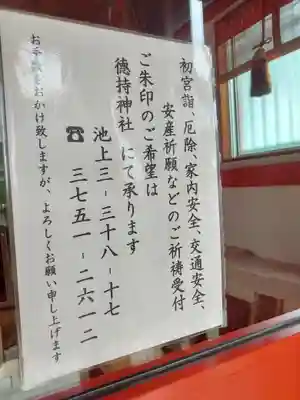 初宮詣、厄除、家内安全、交通安全、
安産祈願などのご祈祷受付
ご朱印のご希望は
徳持神社 にて承ります
池上三-三十八-十七
☎ 三七五一-二六一二
お手数をおかけ致しますが、よろしくお願い申し上げます